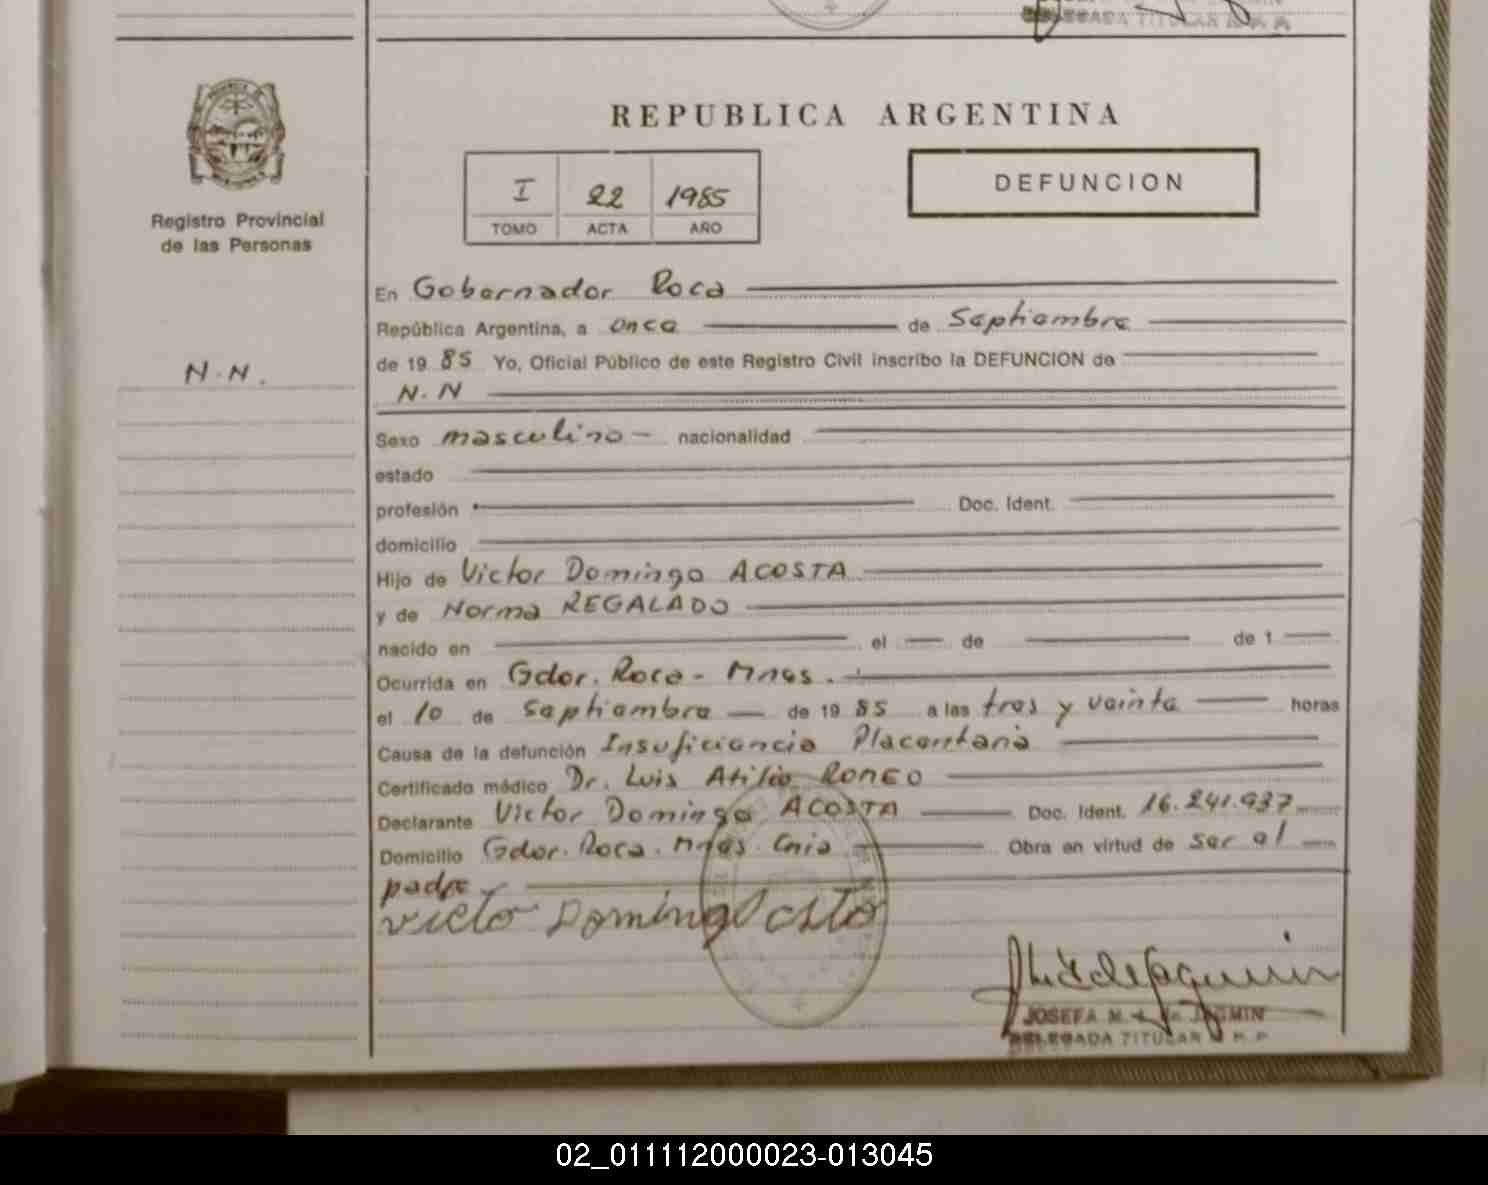 DELEGADA TITULAR R. P. P.
REPUBLICA ARGENTINA
I 22 1985
TOMO ACTA AÑO
DEFUNCION
Registro Provincial
de las Personas
N.N.
En Gobernador Roca
República Argentina, a once de Septiembre
de 19 85 Yo, Oficial Público de este Registro Civil inscribo la DEFUNCION de
N.N
Sexo masculino - nacionalidad
estado
profesión Doc. Ident.
domicilio
Hijo de Victor Domingo ACOSTA
y de Norma REGALADO
nacido en el de de 1
Ocurrida en Gdor. Roca - Mnes.
el 10 de Septiembre de 19 85 a las tres y veinte horas
Causa de la defunción Insuficiencia Placentaria
Certificado médico Dr. Luis Atilio RONCO
Declarante Victor Domingo ACOSTA Doc. Ident. 16.241.937
Domicilio Gdor. Roca. Mnes. Cnia Obra en virtud de ser el
padre
victo Domingo Acosta
JOSEFA M. de JAQMIN
DELEGADA TITULAR R. P. P.
02_011112000023-013045